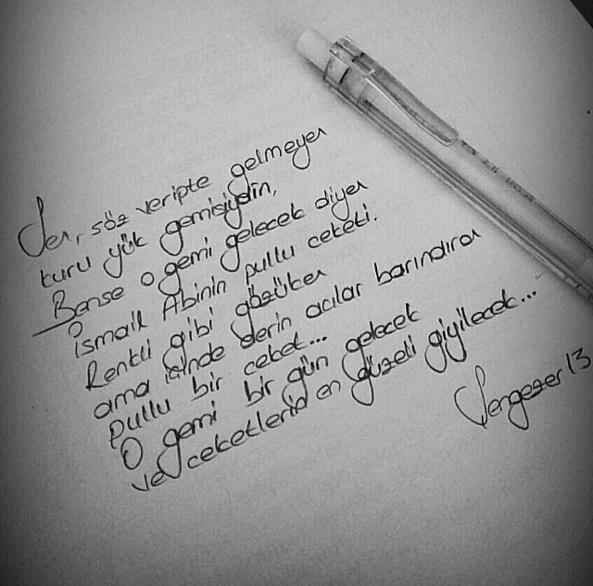 Sen, söz veripte gelmeyen
kuru yük gemisiydin,
Bense o gemi gelecek diyen
ismail Abinin pullu ceketi.
Renkli gibi gözüken
ama içinde derin acılar barındıran
pullu bir ceket...
O gemi bir gün gelecek
ve ceketlerin en güzeli giyilecek...
Sengezer 13